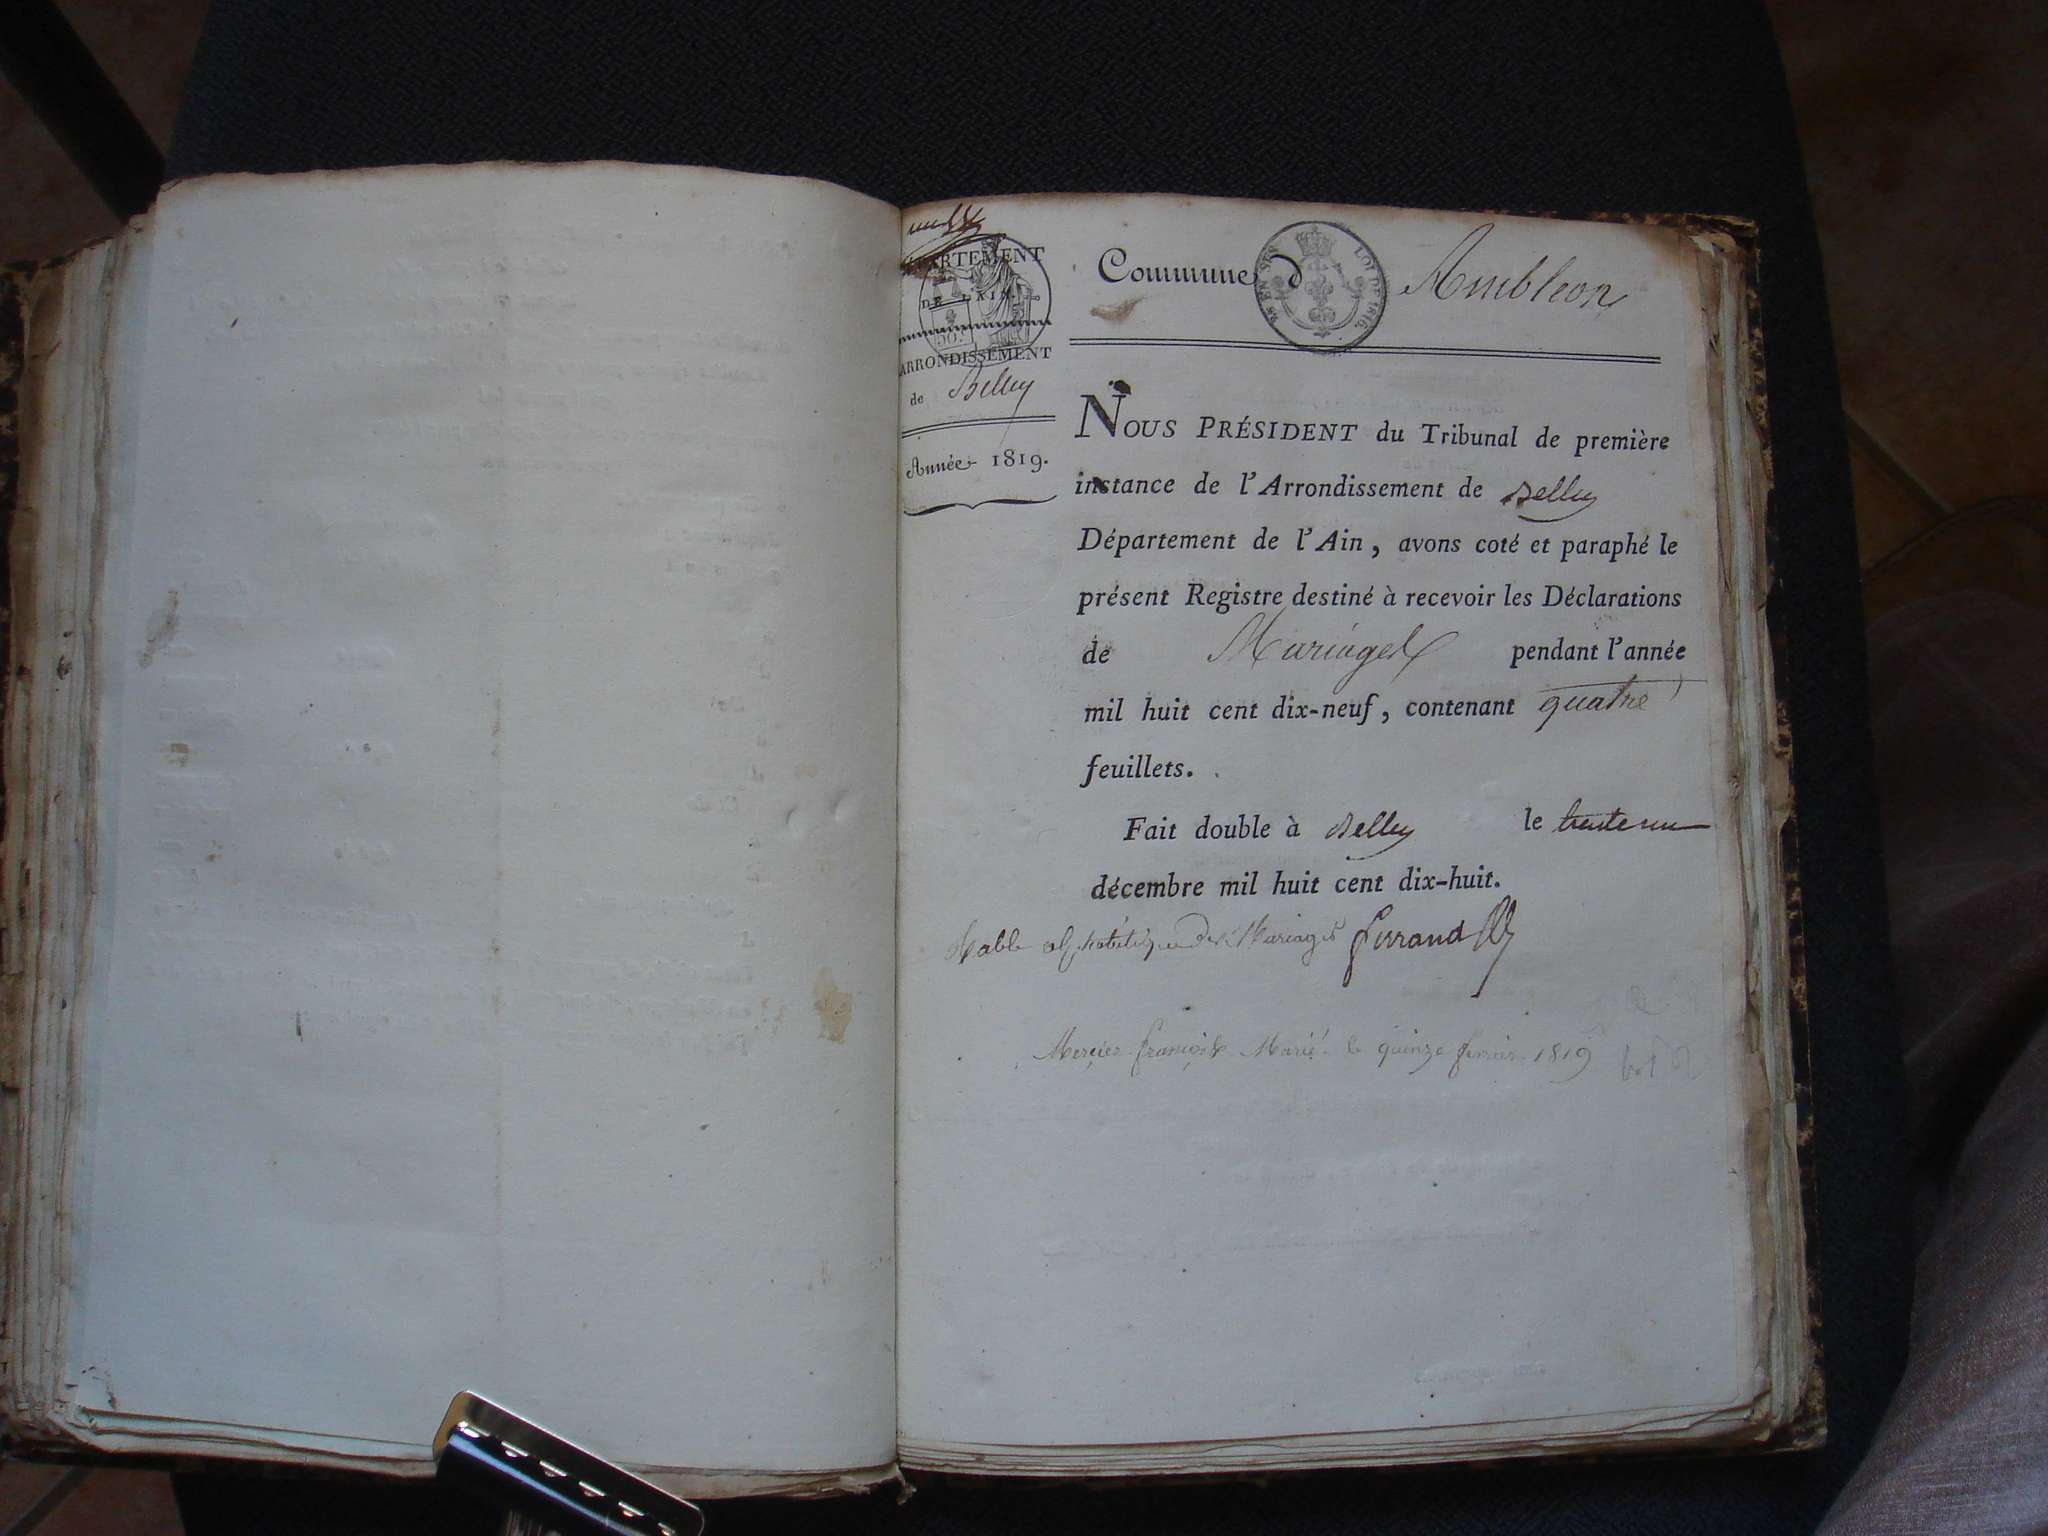 DÉPARTEMENT
DE L'AIN.
ARRONDISSEMENT
de Belley
Année 1819.
Commune d Ambleon
LOI DE 1816.
NOUS PRÉSIDENT du Tribunal de première
instance de l'Arrondissement de Belley
Département de l'Ain, avons coté et paraphé le
présent Registre destiné à recevoir les Déclarations
de Mariages pendant l'année
mil huit cent dix-neuf, contenant quatre
feuillets.
Fait double à Belley le trente un
décembre mil huit cent dix-huit.
Table alphabétique des Mariages ferrand
Mercier françois Marié le quinze fevrier 1819